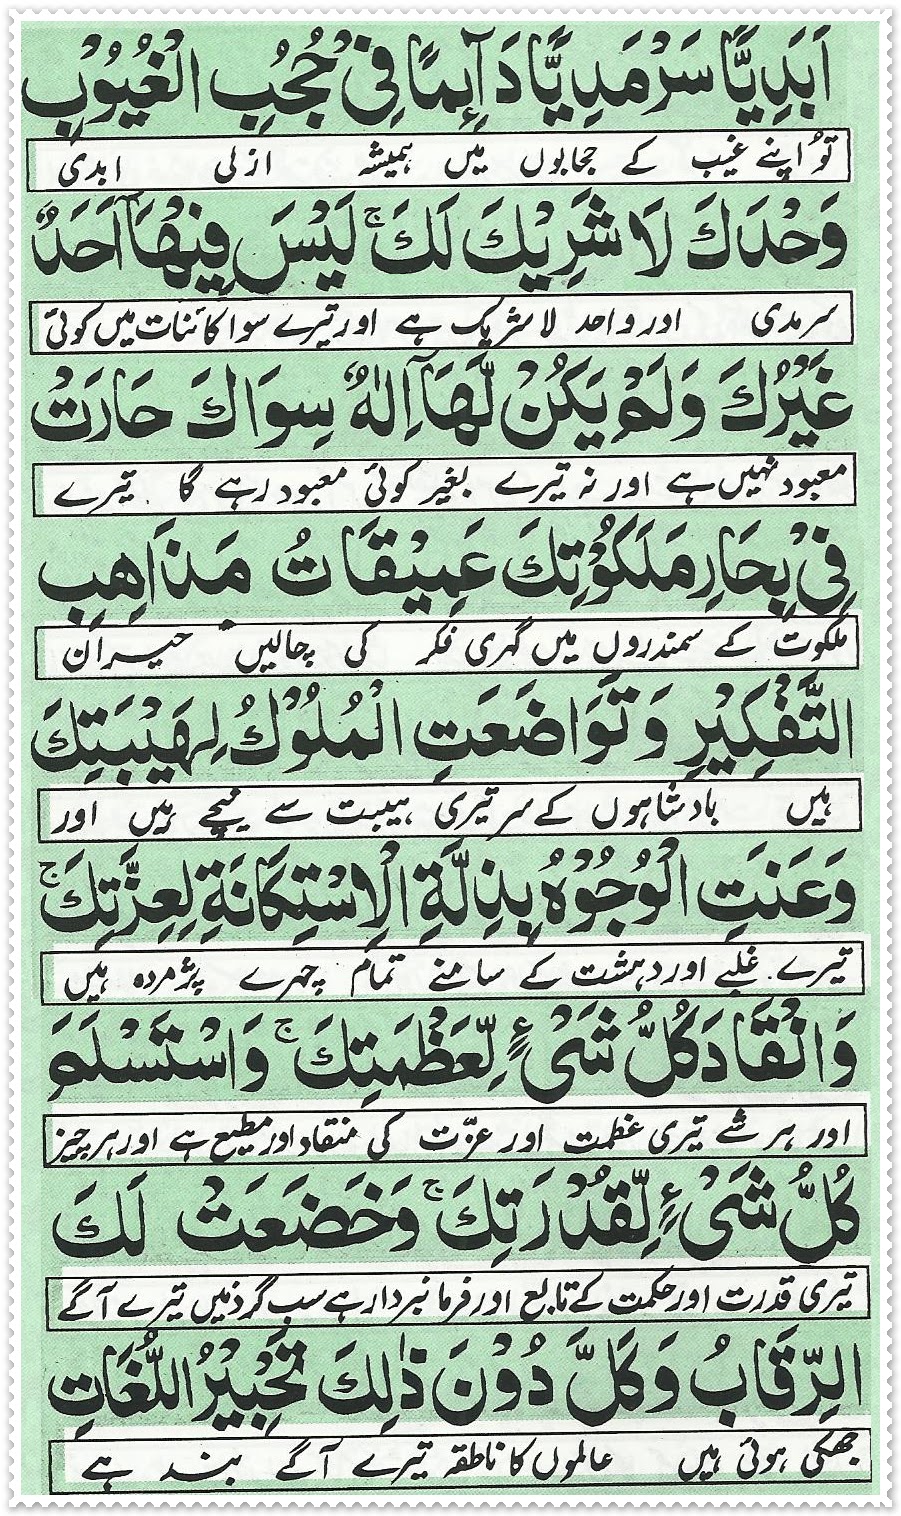 اَبَدِيًّا سَرْمَدِيًّا دَآئِمًا فِيْ حُجُبِ الْغُيُوْبِ
تو اپنے غیب کے حجابوں میں ہمیشہ ازلی ابدی
وَحْدَكَ لَا شَرِيْكَ لَكَ ۚ لَيْسَ فِيْهَآ اَحَدٌ
سرمدی اور واحد لا شریک ہے اور تیرے سوا کائنات میں کوئی
غَيْرُكَ وَلَمْ يَكُنْ لَّهَآ اِلٰهٌ سِوَاكَ حَارَتْ
معبود نہیں ہے اور نہ تیرے بغیر کوئی معبود رہے گا تیرے
فِيْ بِحَارِ مَلَكُوْتِكَ عَمِيْقَاتُ مَذَاهِبِ
ملکوت کے سمندروں میں گہری فکر کی چالیں حیران
التَّفْكِيْرِ وَتَوَاضَعَتِ الْمُلُوْكُ لِهَيْبَتِكَ
ہیں بادشاہوں کے سر تیری ہیبت سے نیچے ہیں اور
وَعَنَتِ الْوُجُوْهُ بِذِلَّةِ الْاِسْتِكَانَةِ لِعِزَّتِكَ ۚ
تیرے غلبے اور دہشت کے سامنے تمام چہرے پژمردہ ہیں
وَانْقَادَ كُلُّ شَيْءٍ لِّعَظْمَتِكَ ۚ وَاسْتَسْلَمَ
اور ہر شے تیری عظمت اور عزّت کی منقاد اور مطیع ہے اور ہر چیز
كُلُّ شَيْءٍ لِّقُدْرَتِكَ ۚ وَخَضَعَتْ لَكَ
تیری قدرت اور حکمت کے تابع اور فرمانبردار ہے سب گردنیں تیرے آگے
الرِّقَابُ وَكَلَّ دُوْنَ ذٰلِكَ تَحْبِيْرُ اللُّغَاتِ
جھکی ہوئی ہیں عالموں کا ناطقہ تیرے آگے بند ہے